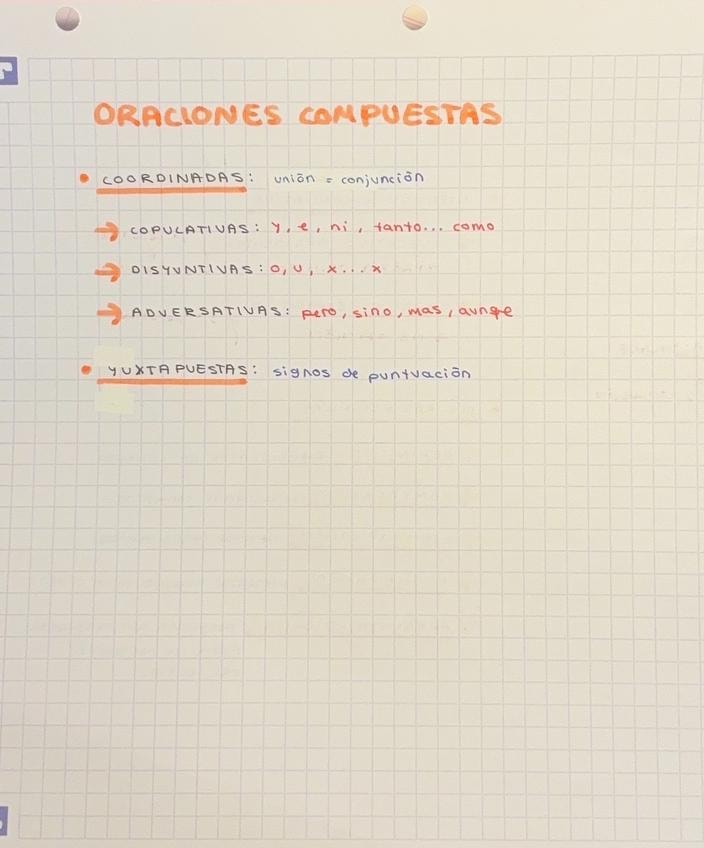 ORACIONES COMPUESTAS
• COORDINADAS: unión = conjunción
→ COPULATIVAS: y, e, ni, tanto... como
→ DISYUNTIVAS: o, u, x...x
→ ADVERSATIVAS: pero, sino, mas, aunqe
• YUXTAPUESTAS: signos de puntuación